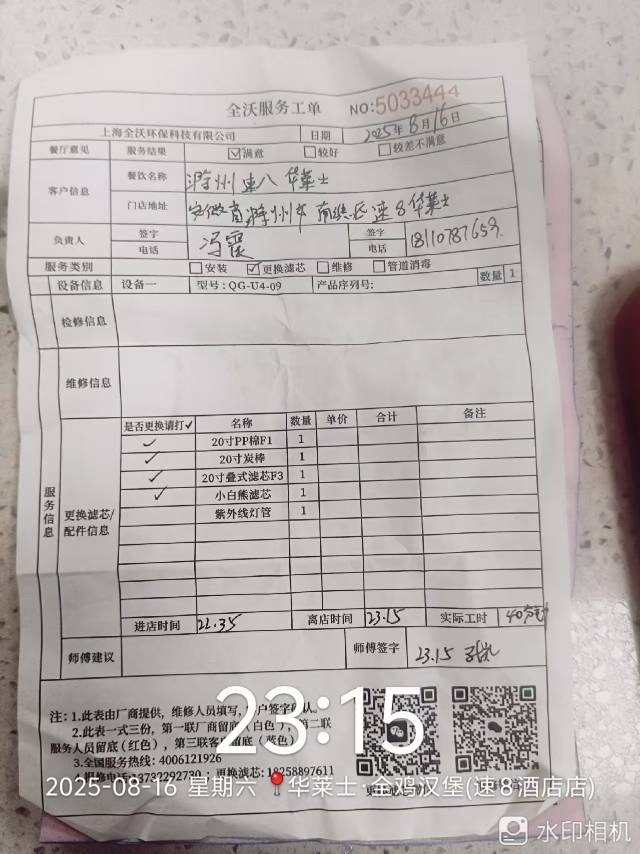 全沃服务工单 NO:5033444
上海全沃环保科技有限公司 日期 2025年8月16日
餐厅意见 服务结果 ☑满意 □较好 □较差不满意
客户信息 餐饮名称 滁州速八华莱士
门店地址 安徽省滁州市南谯区速8华莱士
负责人 签字 冯霞 签字
电话 电话 18110787653.
服务类别 □安装 ☑更换滤芯 □维修 □管道消毒
设备信息 设备一 型号:QG-U4-09 产品序列号: 数量 1
检修信息
维修信息
服务信息
更换滤芯/配件信息
是否更换请打✓ 名称 数量 单价 合计 备注
✓ 20寸PP棉F1 1
✓ 20寸炭棒 1
✓ 20寸叠式滤芯F3 1
✓ 小白熊滤芯 1
紫外线灯管 1
进店时间 22.35 离店时间 23.15 实际工时 40分钟
师傅建议 师傅签字 23.15
注:1.此表由厂商提供,维修人员填写,客户签字确认.
2.此表一式三份,第一联厂商留底(白色),第二联
服务人员留底(红色),第三联客户留底(蓝色)
3.全国服务热线:4006121926
4.报修电话:13732292730 ;更换滤芯:18258897611
23:15
2025-08-16 星期六 华莱士·全鸡汉堡(速8酒店店)
水印相机